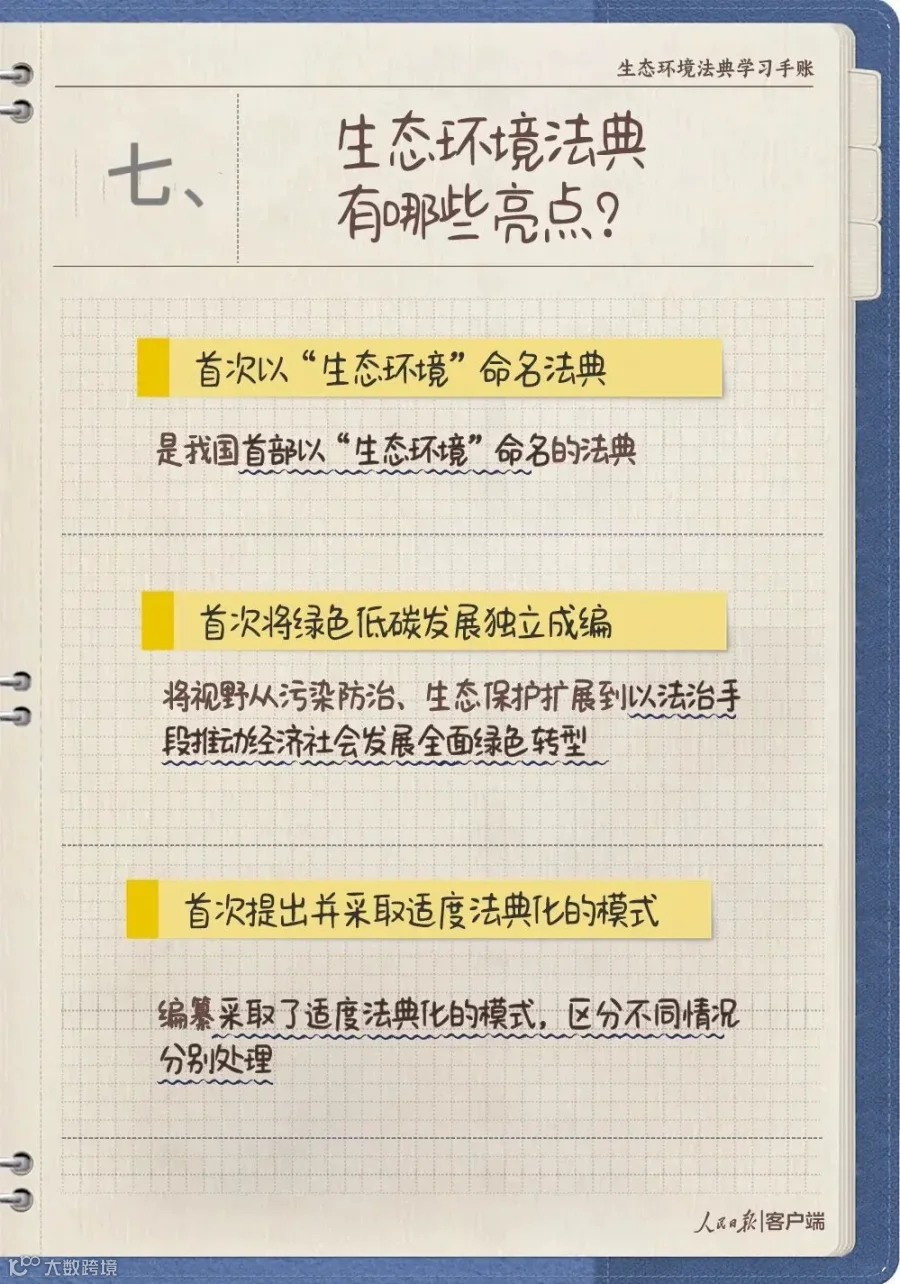 生态环境法典学习手账
七、
生态环境法典
有哪些亮点？
首次以“生态环境”命名法典
是我国首部以“生态环境”命名的法典
首次将绿色低碳发展独立成编
将视野从污染防治、生态保护扩展到以法治手
段推动经济社会发展全面绿色转型
首次提出并采取适度法典化的模式
编纂采取了适度法典化的模式，区分不同情况
分别处理
人民日报|客户端
大数跨境